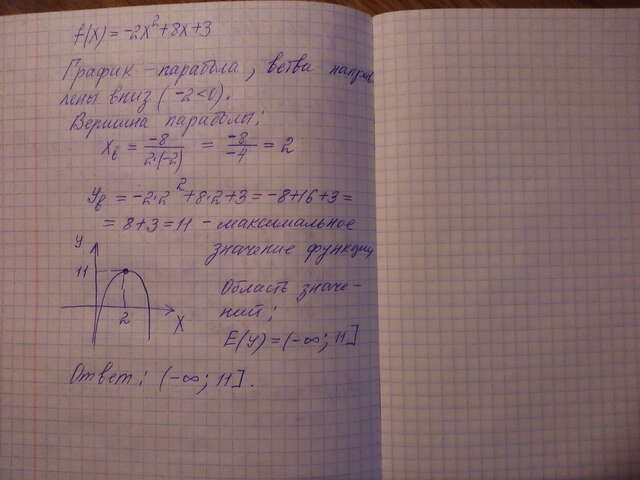 f(x) = -2x²+8x+3
График – парабола, ветви направ
лены вниз (-2<0).
Вершина параболы:
Xв = -8/2·(-2) = -8/-4 = 2
Yв = -2·2²+8·2+3 = -8+16+3 =
= 8+3 = 11 - максимальное
значение функции
У
11
2
X
Область значе-
ний:
E(y) = (-∞; 11]
Ответ: (-∞; 11].